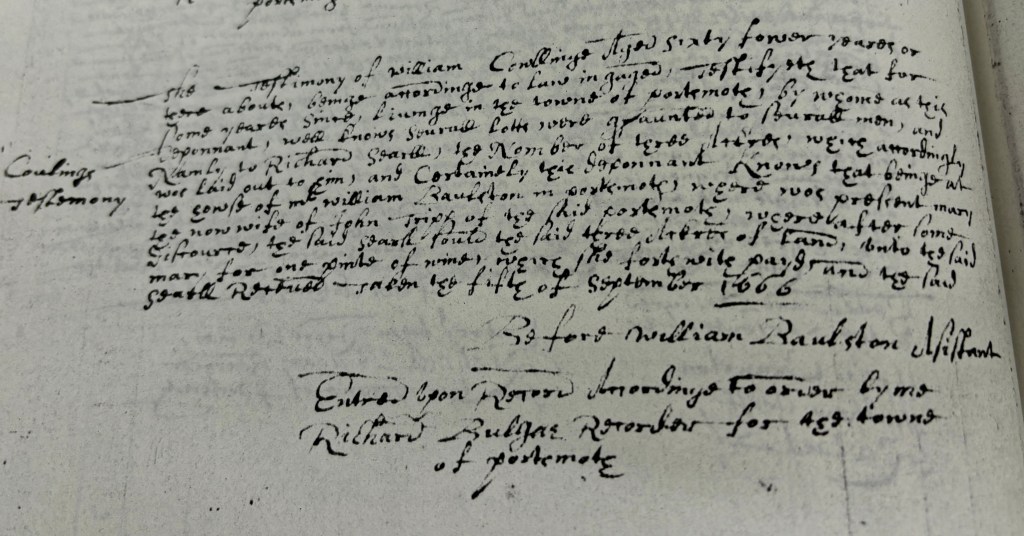 portsmo
The Testimony of William Cowlinge Aged sixty fower yeares or
there about, beinge accordinge to law ingaged, Testifyeth that for
some yeares since, liuinge in the towne of portsmoth, by whome as this
Deponnant, well knows seuerall lotts were graunted to seuerall men, and
Namly to Richard Searll, the Nomber of three Acrees, which accordingly
Coulings
was laid out to him, and Certainely this deponnant Knowes that beinge at
Testemony
the howse of mr William Baulston in portsmoth, where was present mary
the now wife of John Tripp of the said portsmoth, where after some
discource, the said Searll sould the said three Acrees of land, vnto the said
mary for one pinte of wine, which she forthwith payd, and the said
Searll Receiued Taken the fifth of September 1666
Before William Baulston Asistant
Entred Vpon Record Accordinge to order by me
Richard Bulgar Recorder for the towne
of portsmoth